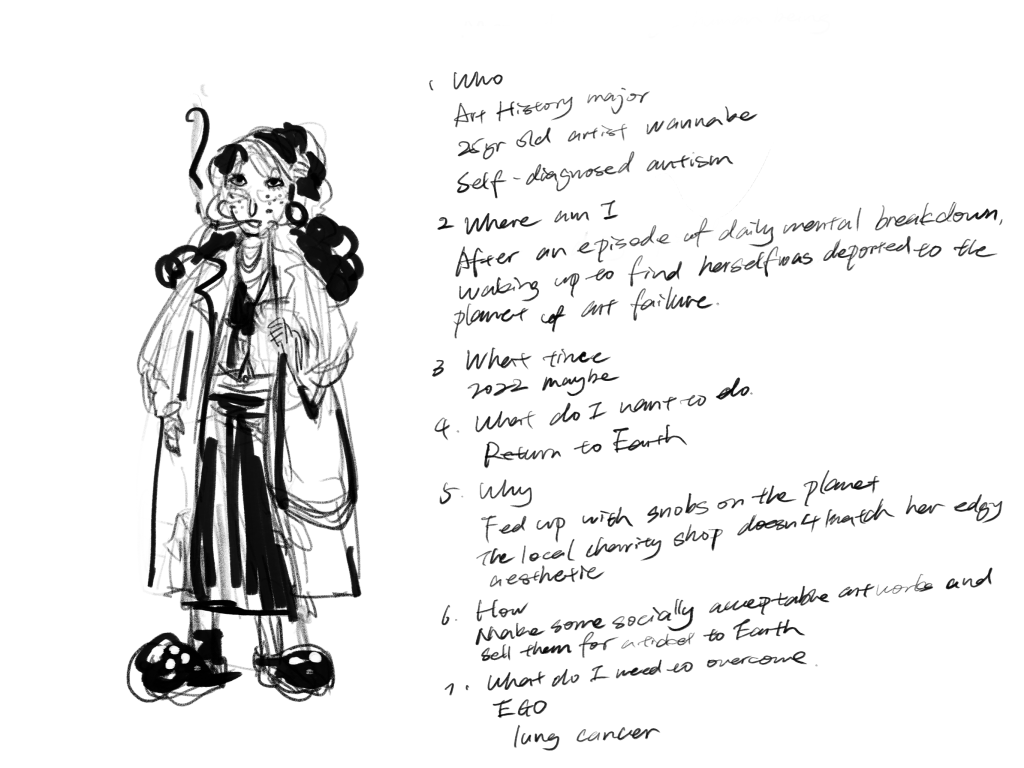 1 Who
Art History major
25yr old artist wannabe
Self-diagnosed autism
2 Where am I
After an episode of daily mental breakdown,
waking up to find herself was deported to the
planet of art failure.
3 What time
2022 maybe
4. What do I want to do.
Return to Earth
5. Why
Fed up with snobs on the planet
The local charity shop doesn't match her edgy
aesthetic
6. How
Make some socially acceptable artworks and
sell them for a ticket to Earth
7. What do I need to overcome.
EGO
lung cancer